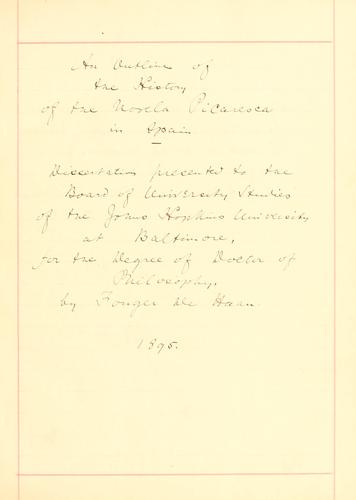 An Outline of
the History
of the Novela Picaresca
in Spain
Dissertation presented to the
Board of University Studies
of the Johns Hopkins University
at Baltimore,
for the Degree of Doctor of
Philosophy,
by Fonger De Haan.
1895.